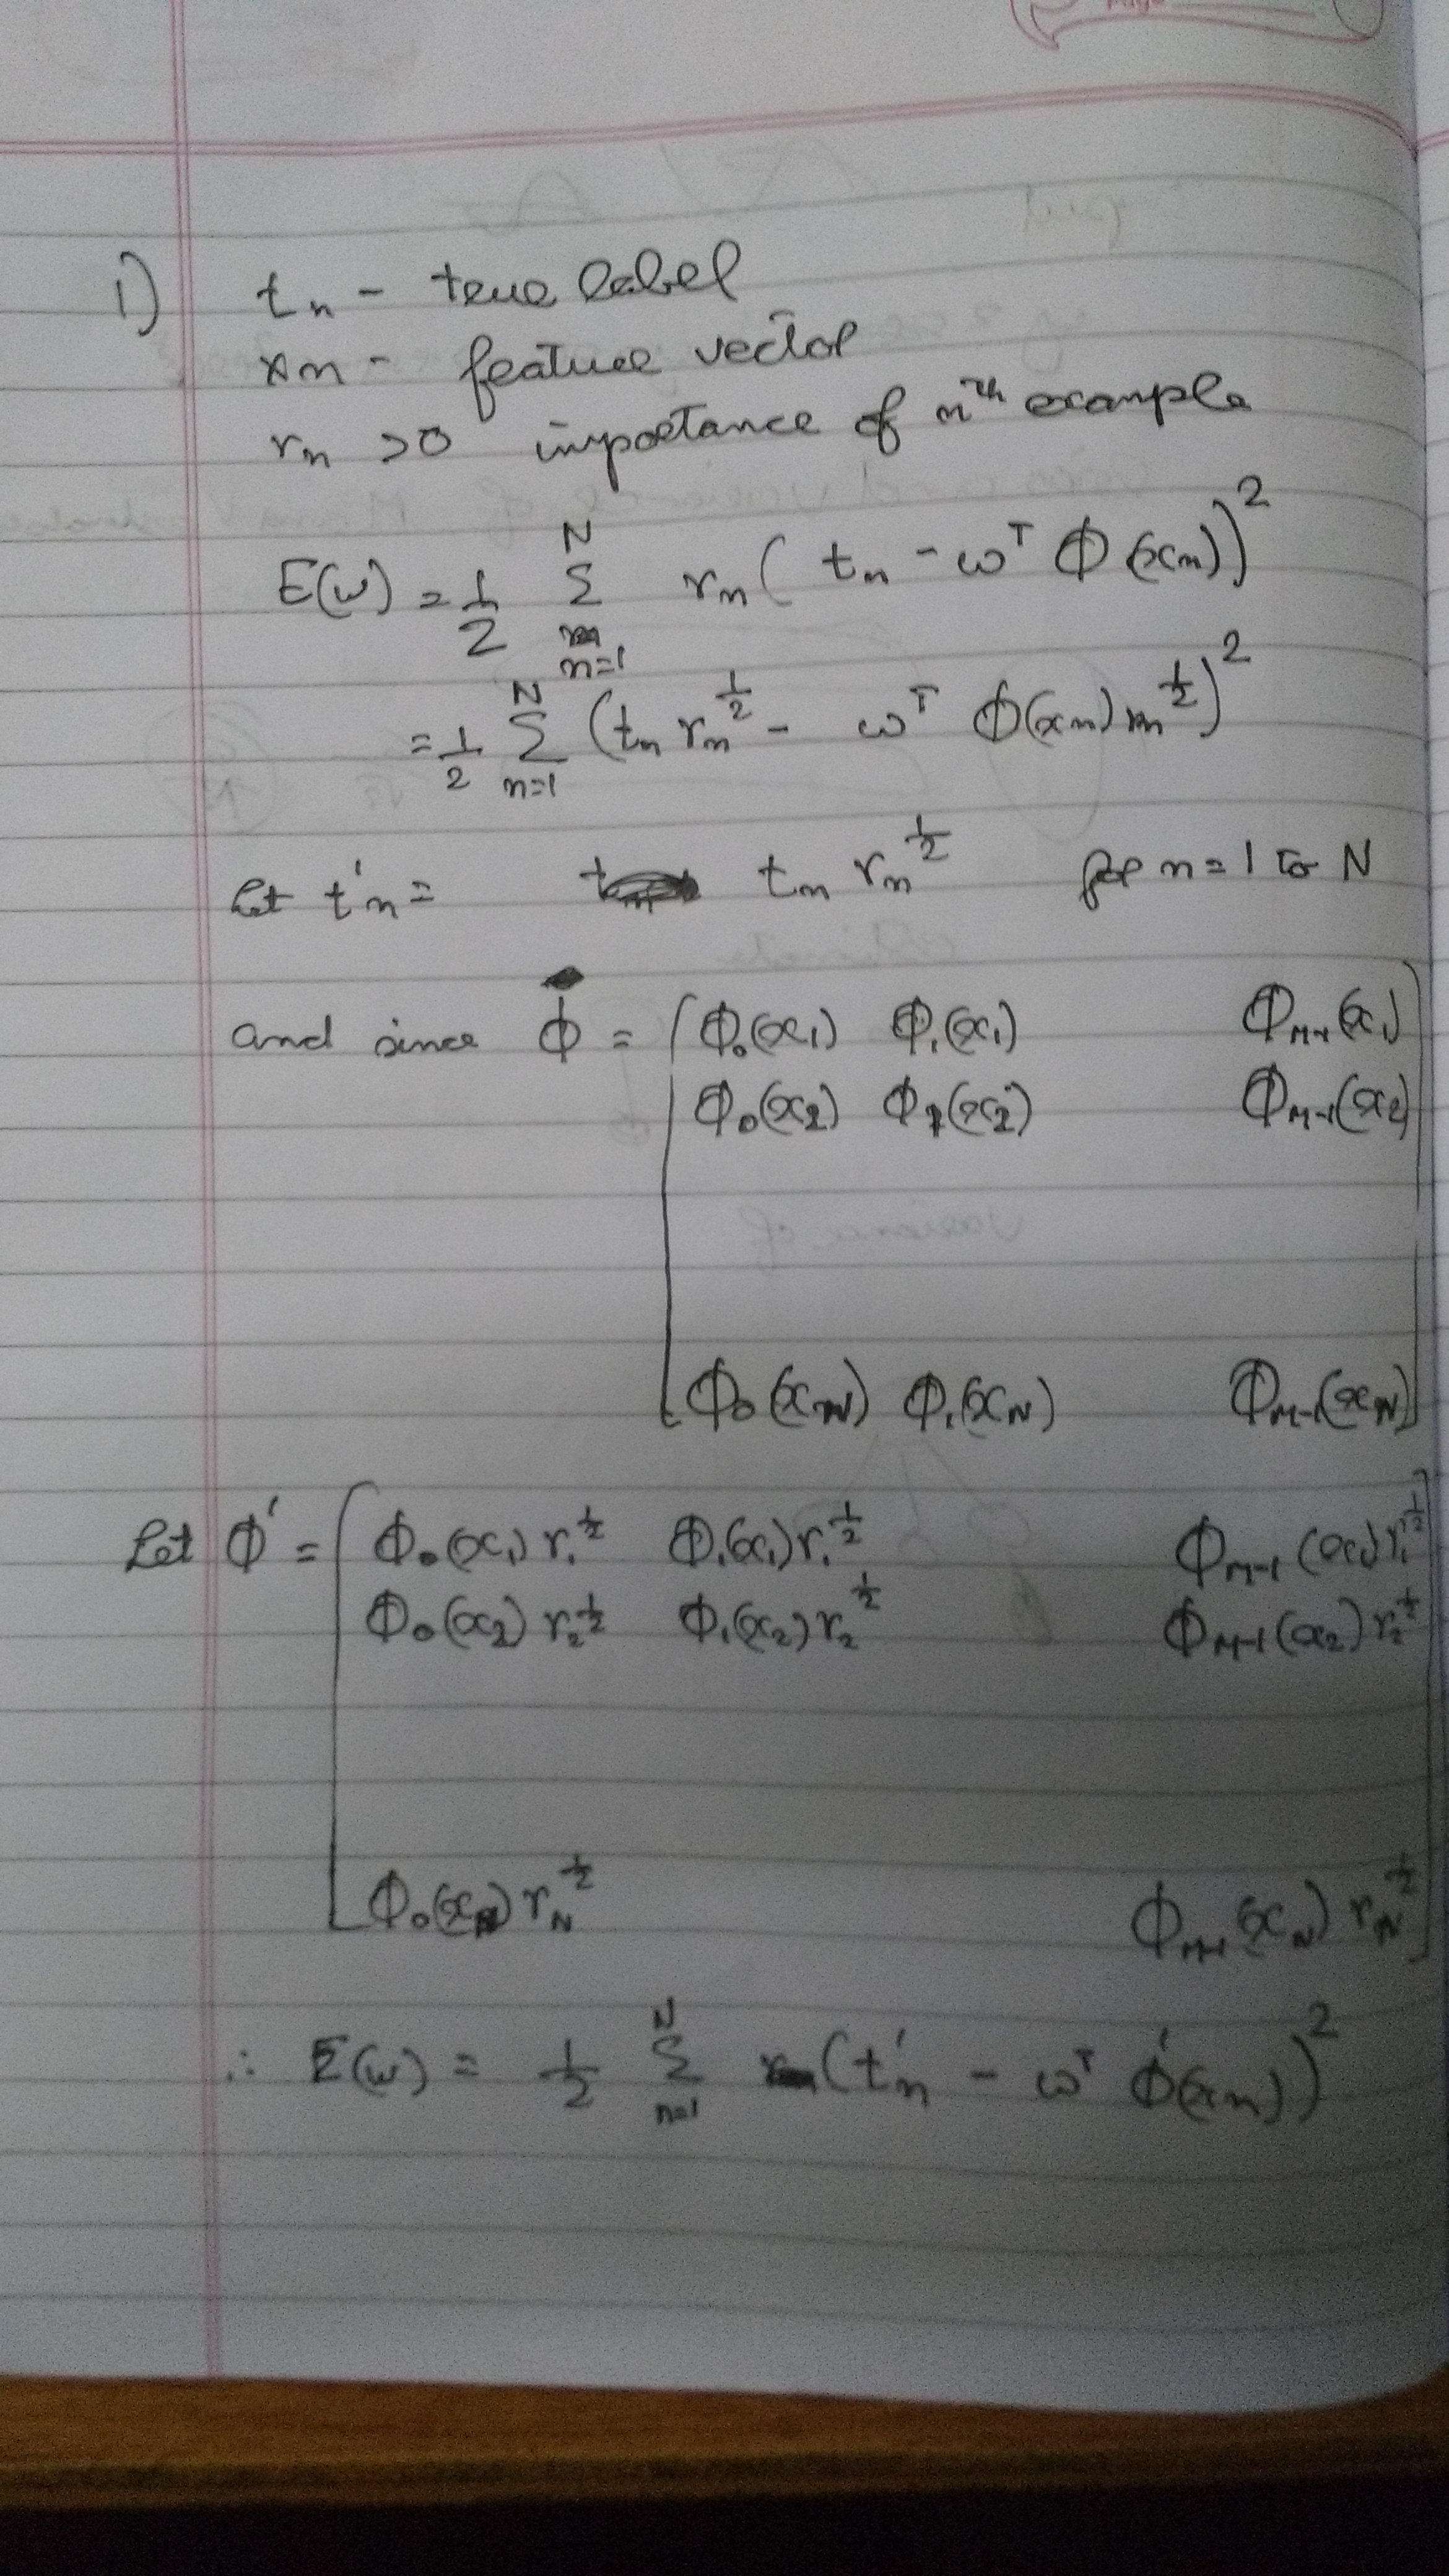 1) tn - true label
xn - feature vector
rn >0 importance of nth example
E(w) = 1/2 Σ_{n=1}^{N} rn ( tn - wᵀ Φ(xn) )²
= 1/2 Σ_{n=1}^{N} (tn rn^{1/2} - wᵀ Φ(xn) rn^{1/2})²
Let t'n = tn rn^{1/2} for n = 1 to N
and since Φ = [ Φ0(x1) Φ1(x1) ΦM-1(x1)
Φ0(x2) Φ1(x2) ΦM-1(x2)
Φ0(xN) Φ1(xN) ΦM-1(xN) ]
Let Φ' = [ Φ0(x1) r1^{1/2} Φ1(x1) r1^{1/2} ΦM-1(x1) r1^{1/2}
Φ0(x2) r2^{1/2} Φ1(x2) r2^{1/2} ΦM-1(x2) r2^{1/2}
Φ0(xN) rN^{1/2} ΦM-1(xN) rN^{1/2} ]
∴ E(w) = 1/2 Σ_{n=1}^{N} (t'n - wᵀ Φ'(xn))²